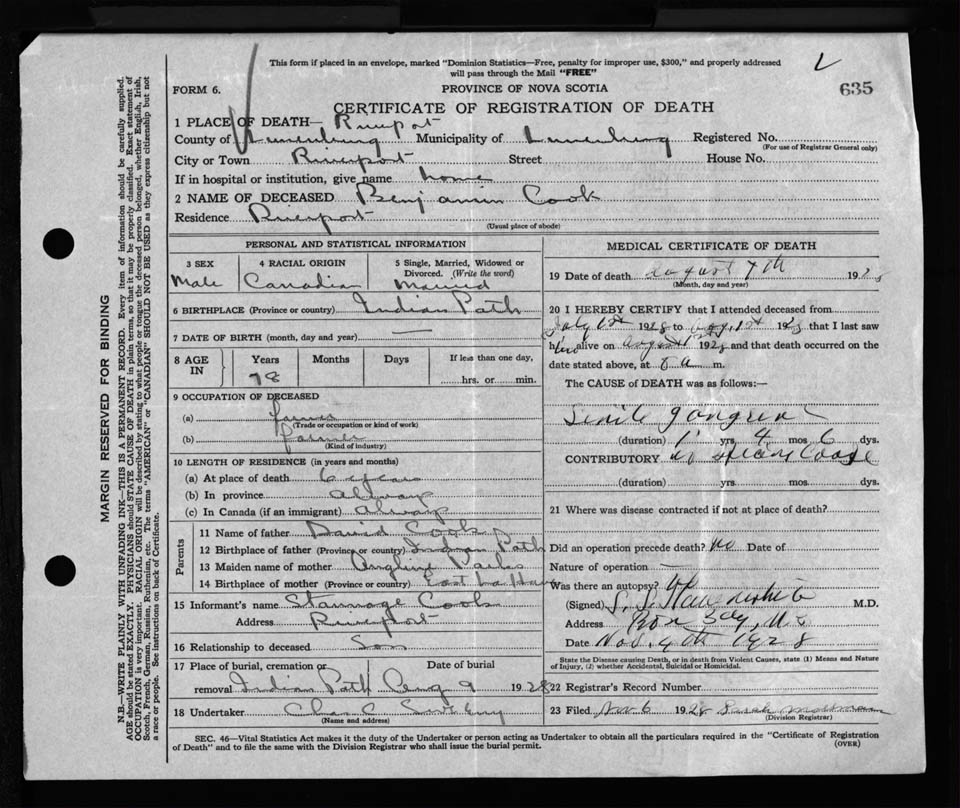 This form if placed in an envelope, marked "Dominion Statistics—Free, penalty for improper use, $300," and properly addressed
will pass through the Mail "FREE"
FORM 6.
PROVINCE OF NOVA SCOTIA
635
CERTIFICATE OF REGISTRATION OF DEATH
1 PLACE OF DEATH— Riverport
County of Lunenburg Municipality of Lunenburg Registered No.
(For use of Registrar General only)
City or Town Riverport Street House No.
If in hospital or institution, give name home
2 NAME OF DECEASED Benjamin Cook
Residence Riverport
(Usual place of abode)
PERSONAL AND STATISTICAL INFORMATION
3 SEX 4 RACIAL ORIGIN 5 Single, Married, Widowed or
Divorced. (Write the word)
Male Canadian Married
6 BIRTHPLACE (Province or country) Indian Path
7 DATE OF BIRTH (month, day and year) —
8 AGE IN Years Months Days If less than one day,
78 hrs. or min.
9 OCCUPATION OF DECEASED
(a) farmer
(Trade or occupation or kind of work)
(b) farmer
(Kind of industry)
10 LENGTH OF RESIDENCE (in years and months)
(a) At place of death 6 years
(b) In province always
(c) In Canada (if an immigrant) always
Parents
11 Name of father David Cook
12 Birthplace of father (Province or country) Indian Path
13 Maiden name of mother Parks
14 Birthplace of mother (Province or country) East LaHave
15 Informant's name Stannage Cook
Address Riverport
16 Relationship to deceased Son
17 Place of burial, cremation or Date of burial
removal Indian Path Aug 9 1928
18 Undertaker Chas
(Name and address)
MEDICAL CERTIFICATE OF DEATH
19 Date of death August 7th 1928
(Month, day and year)
20 I HEREBY CERTIFY that I attended deceased from
July 1st 1928 to Aug, 1st 1928 that I last saw
him alive on August 1928 and that death occurred on the
date stated above, at 8 a m.
The CAUSE of DEATH was as follows:—
Senile gangrene
(duration) yrs. 4 mos. 6 dys.
CONTRIBUTORY
(duration) yrs. mos. dys.
21 Where was disease contracted if not at place of death?
Did an operation precede death? no Date of
Nature of operation —
Was there an autopsy? no
(Signed) M.D.
Address Box
Date Nov. 4th 1928
State the Disease causing Death, or in death from Violent Causes, state (1) Means and Nature
of Injury, (2) whether Accidental, Suicidal or Homicidal.
22 Registrar's Record Number
23 Filed Nov 6 1928 Sarah
(Division Registrar)
SEC. 46—Vital Statistics Act makes it the duty of the Undertaker or person acting as Undertaker to obtain all the particulars required in the "Certificate of Registration
of Death" and to file the same with the Division Registrar who shall issue the burial permit.
(OVER)
MARGIN RESERVED FOR BINDING
N.B.—WRITE PLAINLY WITH UNFADING INK—THIS IS A PERMANENT RECORD. Every item of information should be carefully supplied.
AGE should be stated EXACTLY. PHYSICIANS should STATE CAUSE OF DEATH in plain terms, so that it may be properly classified. Exact statement of
OCCUPATION is very important. RACIAL ORIGIN will be described by stating to what people or tongue the deceased person belonged, whether English, Irish,
Scotch, French, German, Russian, Ruthenian, etc. The terms "AMERICAN" or "CANADIAN" SHOULD NOT BE USED as they express citizenship but not
a race or people. See instructions on back of Certificate.